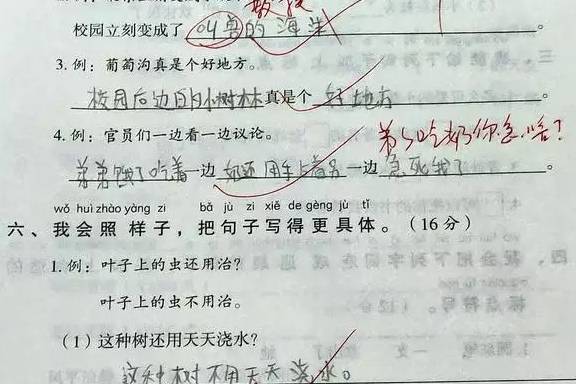 校园立刻变成了叫兽的海洋。
3. 例：葡萄沟真是个好地方。
校园后边的小树林真是个好地方。
4. 例：官员们一边看一边议论。
弟弟吃奶你急啥？
弟弟饿了吃着一边一边急死我了。
wǒ huì zhào yàng zi bǎ jù zi xiě de gèng jù tǐ
六、我会照样子，把句子写得更具体。（16分）
1. 例：叶子上的虫还用治？
叶子上的虫不用治。
（1）这种树还用天天浇水？
这种树不用天天浇水。